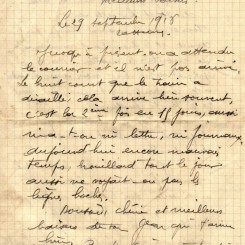 Le 29 septembre 1915
jusqu'à présent on a attendu
le courrier et il n'est pas arrivé,
le bruit court que le train a
déraillé cela arrive bien souvent,
c'est la 2ème fois en 15 jours, aussi
n'a-t-on ni lettre, ni journaux,
aujourd'hui encore mauvais
temps, brouillard tout le jour
aussi ne voyait-on pas le
boche.
chérie et meilleurs
baisers de ton Jean qui t'aime
bien